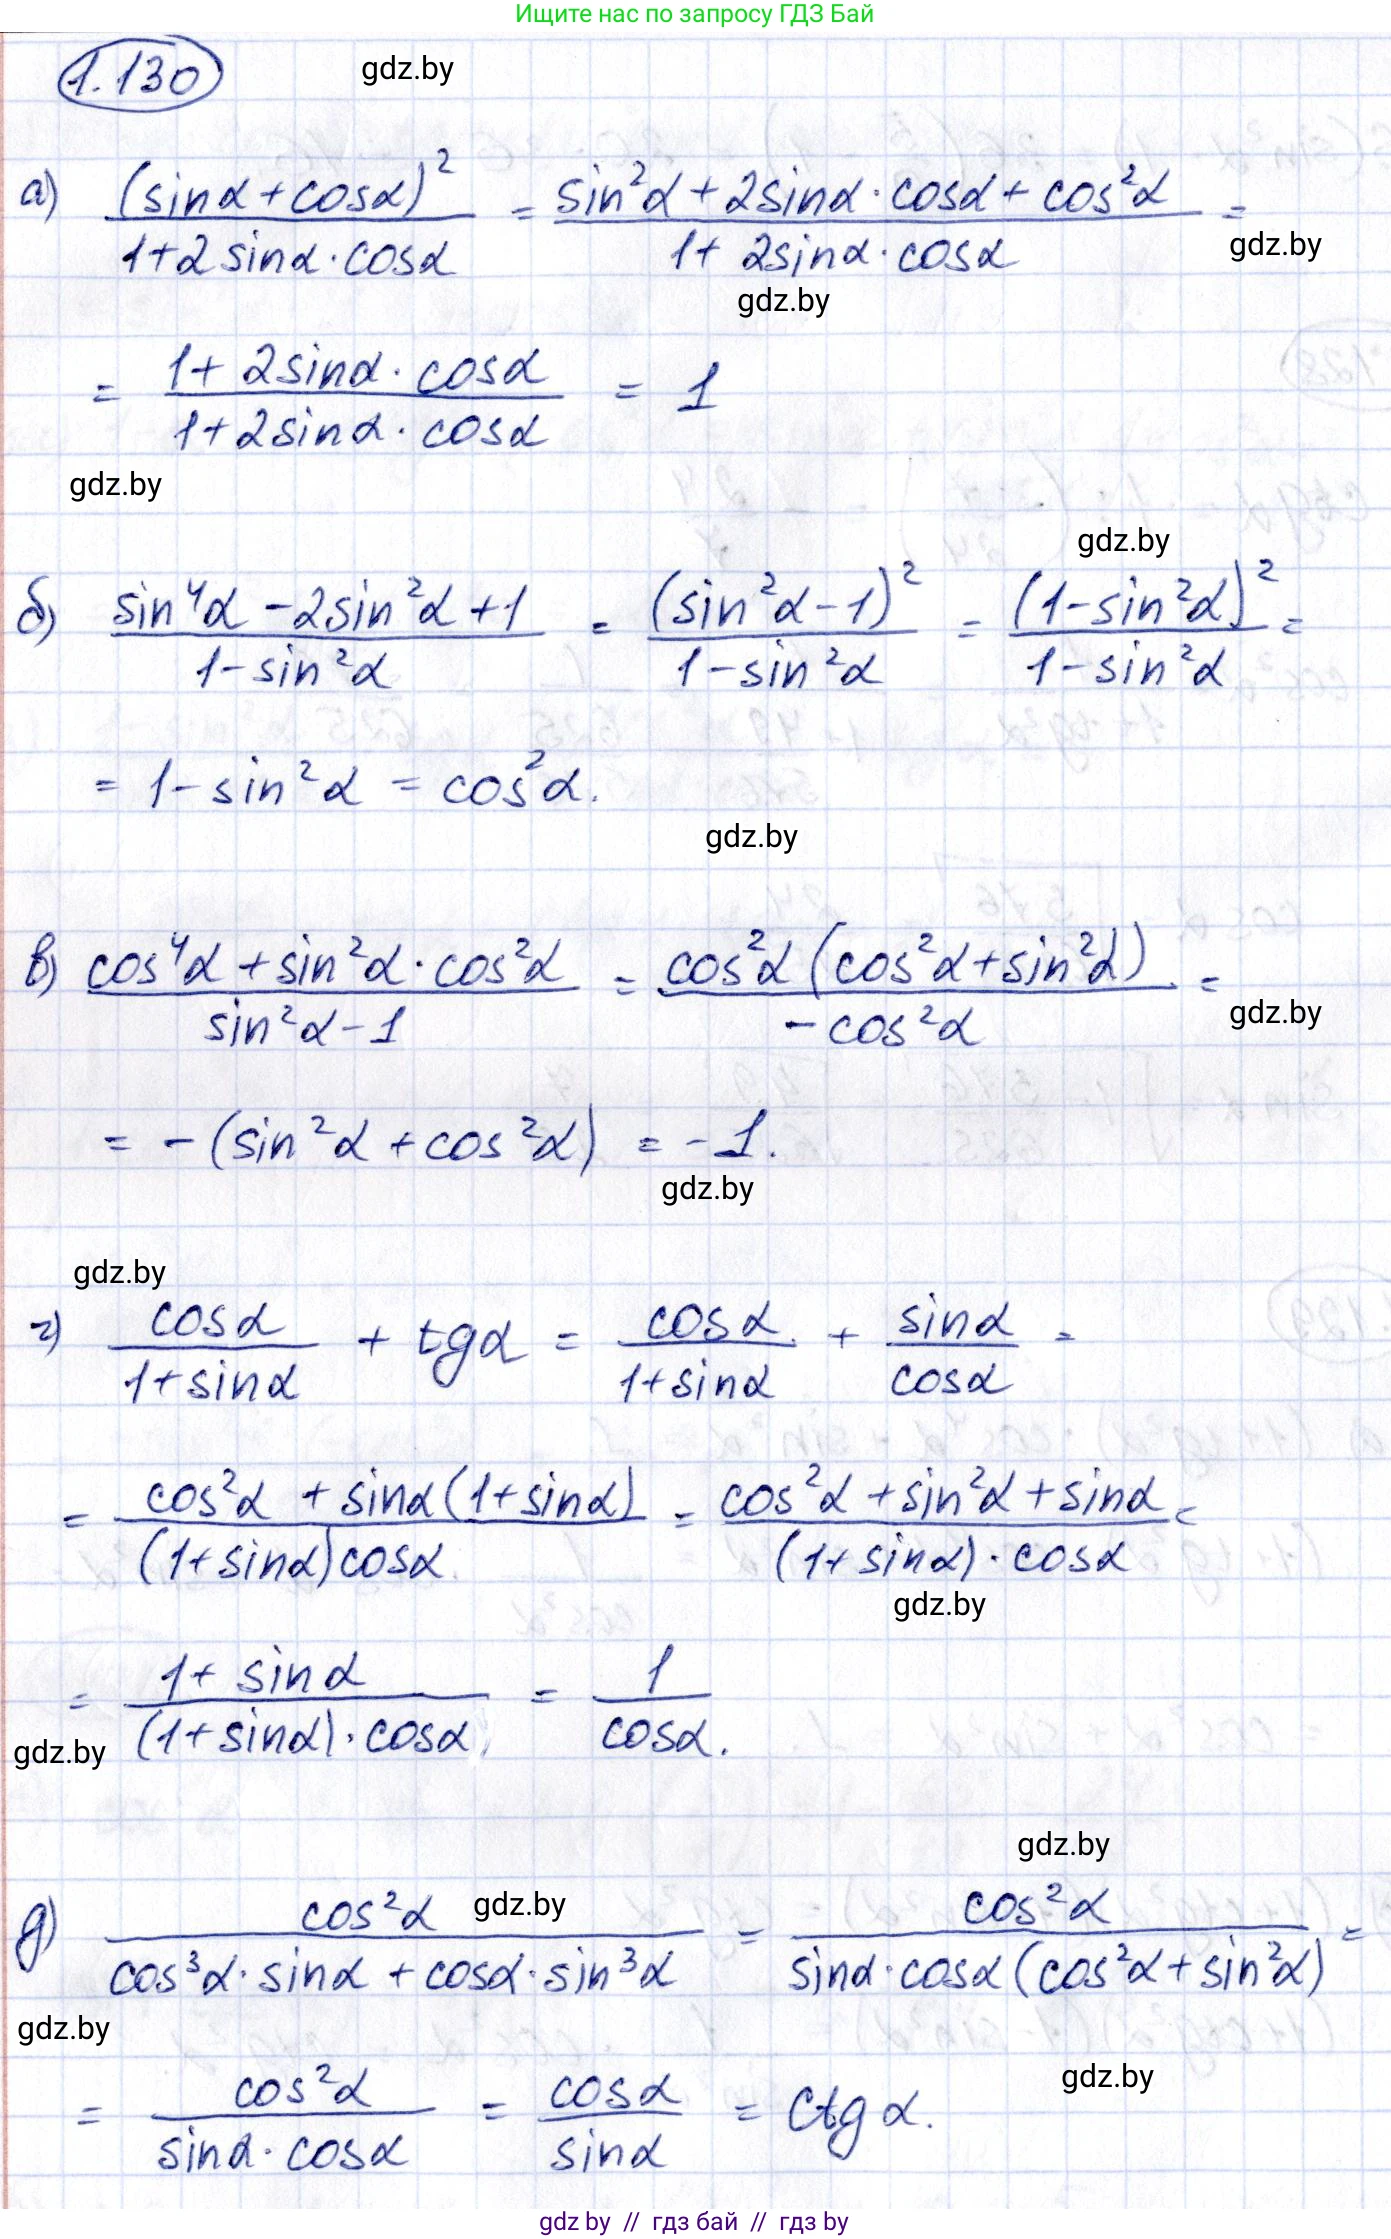 Ищите нас по запросу ГДЗ Бай
1.130 gdz.by
а) (sinα+cosα)² / (1+2sinα·cosα) = (sin²α+2sinα·cosα+cos²α) / (1+2sinα·cosα) =
gdz.by
gdz.by
= (1+2sinα·cosα) / (1+2sinα·cosα) = 1
gdz.by
gdz.by
б) (sin⁴α-2sin²α+1) / (1-sin²α) = (sin²α-1)² / (1-sin²α) = (1-sin²α)² / (1-sin²α) =
= 1-sin²α = cos²α.
gdz.by
в) (cos⁴α+sin²α·cos²α) / (sin²α-1) = cos²α(cos²α+sin²α) / (-cos²α) =
gdz.by
= -(sin²α+cos²α) = -1.
gdz.by
gdz.by
г) cosα / (1+sinα) + tgα = cosα / (1+sinα) + sinα / cosα =
= (cos²α+sinα(1+sinα)) / ((1+sinα)cosα) = (cos²α+sin²α+sinα) / ((1+sinα)·cosα) =
gdz.by
= (1+sinα) / ((1+sinα)·cosα) = 1 / cosα.
gdz.by
gdz.by
gdz.by
д) cos²α / (cos³α·sinα+cosα·sin³α) = cos²α / (sinα·cosα(cos²α+sin²α)) =
gdz.by
gdz.by
= cos²α / (sinα·cosα) = cosα / sinα = ctgα.
gdz by // гдз бай // гдз by